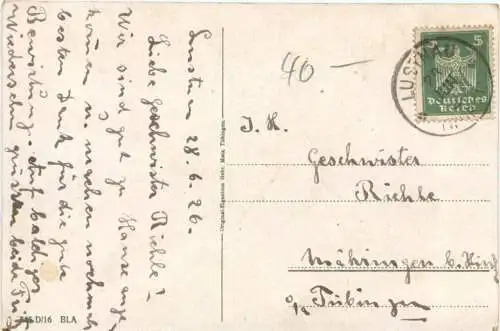 Lustnau 28.6.26.
Liebe Geschwister Riehle!
Wir sind gut zu Hause ange-
kommen u. machen nochmals
besten Dank für die gute
Bewirtung. Auf baldiges
Wiedersehen grüssen beide
40 —
5
Deutsches
Reich
LUSTNAU
J. H.
Geschwister
Riehle
Mähringen b.
Tübingen
Original-Eigentum Gebr. Metz, Tübingen.
D/16 BLA